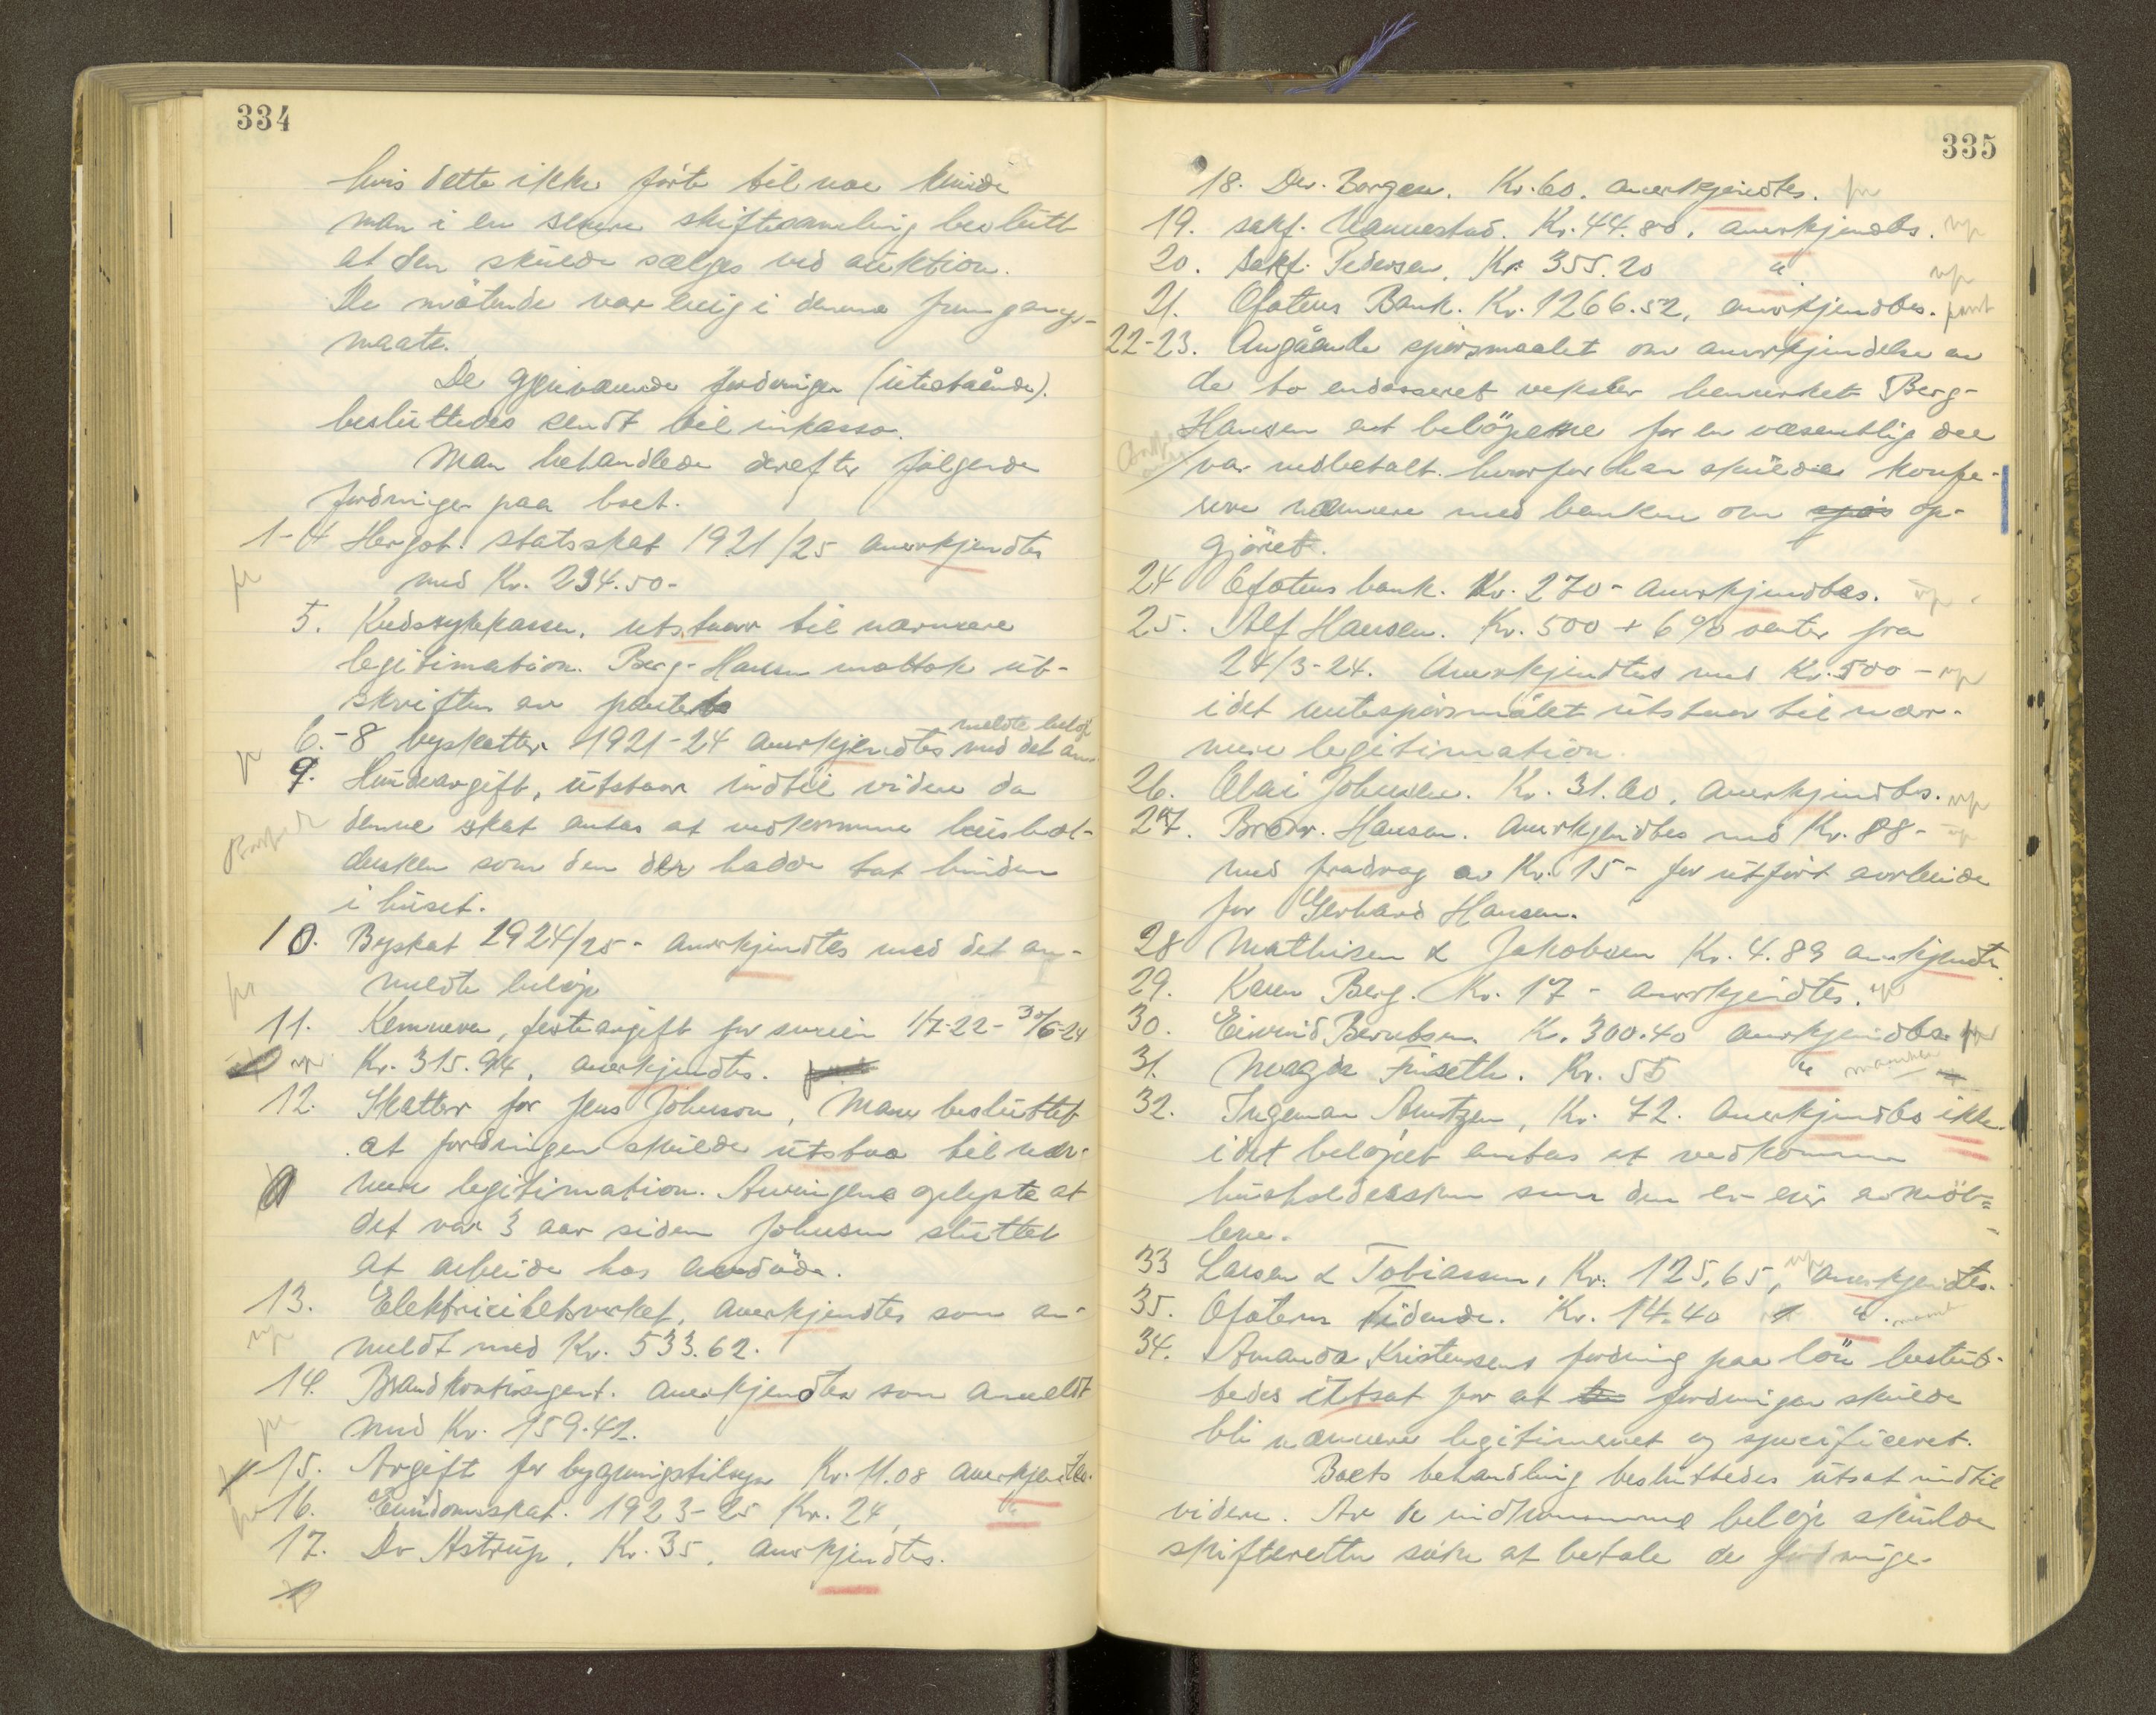 334
hvis dette ikke førte til noe kunde
man i en senere skiftesamling beslutte
at den skulde sælges ved auktion.
De møtende var enig i denne fremgangs-
maate.
De gjenværende fordringer (utestaaende)
besluttedes sendt til inkasso.
Man behandlede derefter følgende
fordringer paa boet.
1-4 Hergot. statsskat 1921/25 anerkjendtes
med Kr. 234.50-
5. Kredssykekassen, utstaar til nærmere
legitimation. Berg-Hansen mottok ut-
skriften av
6.-8 byskatter 1921-24 anerkjendtes med det an-
meldte beløp
9. Hundeavgift, utstaar indtil videre da
denne skat antas at vedkomme hushol-
dersken som den der hadde tat hunden
i huset.
10. Byskat 1924/25 - anerkjendtes med det an-
meldte beløp
11. Kemneren, festeavgift for 1/7-22 - 30/6-24
Kr. 315.94, anerkjendtes.
12. Skatter for Jens Johnson, Man besluttet
at fordringen skulde utstaa til nær-
mere legitimation. Arvingene oplyste at
det var 3 aar siden Johnsen sluttet
at arbeide hos avdøde.
13. Elektricitetsverket, anerkjendtes som an-
meldt med Kr. 533.62.
14. Brandkontingent. anerkjendtes som anmeldt
med Kr. 159.41.
15. Avgift for bygningstilsyn Kr. 11.08 anerkjendtes.
16. Eiendomsskat. 1923-25 Kr. 24, "
17. Dr Astrup, Kr. 35, anerkjendtes.
335
18. Dr. Borgen. Kr. 60. anerkjendtes.
19. sakf. Vannestad. Kr. 44.80, anerkjendtes.
20. Sakf. Pedersen, Kr. 355.20 "
21. Ofotens Bank. Kr. 1266.52, anerkjendtes.
22-23. Angående spørsmaalet om anerkjendelse av
de to endosseret veksler bemerket Berg-
Hansen at beløpene for en væsentlig del
var nedbetalt. hvorfor han skulde konfe-
rere nærmere med banken om spørs op-
gjøret.
24 Ofotens bank. Kr. 270 - anerkjendtes.
25. Alf Hansen. Kr. 500 + 6% renter fra
24/3-24. Anerkjendtes med Kr. 500 -
idet rentespørsmålet utstaar til nær-
mere legitimation.
26. Olai Johnsen. Kr. 31.60, anerkjendtes.
27. Brødr. Hansen. anerkjendtes med Kr. 88-
med fradrag av Kr. 15 - for utført arbeide
for Gerhard Hansen.
28 Mathisen & Jakobsen Kr. 4.89 anerkjendtes
29. Karen Berg. Kr. 17 - anerkjendtes.
30. Eivind Berntsen Kr. 300.40 anerkjendtes
31. Magda Finseth. Kr. 55 "
32. Ingeman Arntzen, Kr. 72. anerkjendtes ikke
idet beløpet antas at vedkomme
husholdersken som den er eier av møb-
lene.
33 Larsen & Tobiassen, Kr. 125,65, anerkjendtes.
35. Ofotens Tidende. Kr. 14.40 "
34. Amanda Kristensens fordring paa løn beslut-
tedes utsat for at fordringen skulde
bli nærmere legitimeret og specificeret.
Boets behandling besluttedes utsat indtil
videre. Av de indkommne beløp skulde
skifteretten søke at betale de fordringer